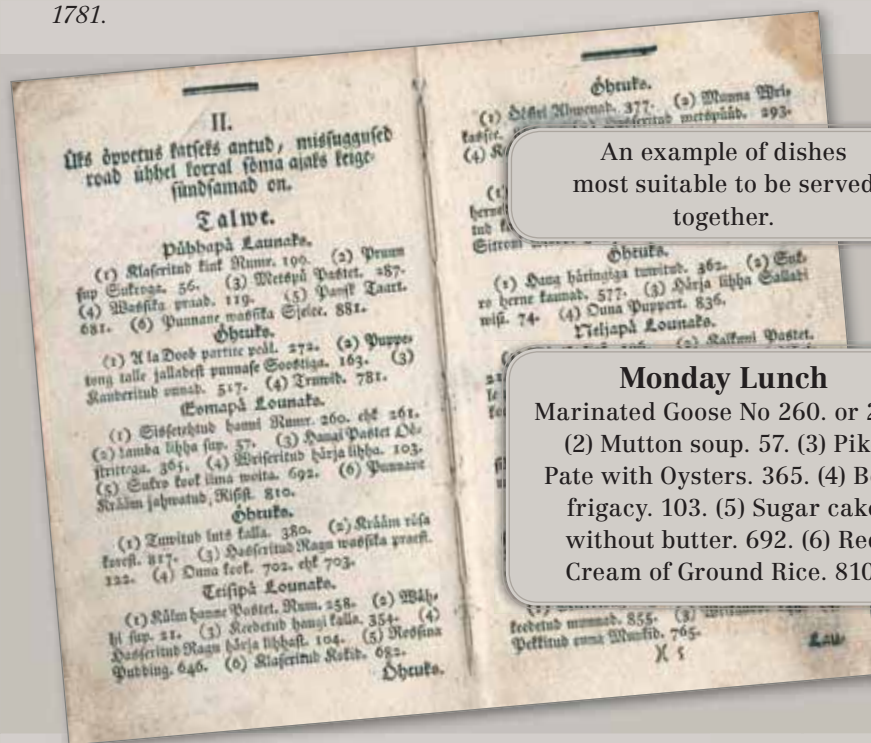 1781.
II.
Üks öppetus katseks antud, missuggused
road ühhel korral söma ajaks keige
sündsamad on.
Talwe.
Pühhapä Launaks.
(1) Klaseritud kink Numr. 190. (2) Pruun
sup Sukroga. 56. (3) Metspü Pastet. 287.
(4) Wassika praad. 119. (5) Pansk Taart.
681. (6) Punnane wassika Sjelee. 881.
Öhtuks.
(1) A la Doob partite peäl. 272. (2) Puppe-
tong talle jallabest punnase Soostiga. 163. (3)
Kanderitud ounad. 517. (4) Truwid. 781.
Esmapä Lounaks.
(1) Sissetehtud hanni Numr. 260. ehk 261.
(2) lamba lihha sup. 57. (3) Haugi Pastet Oe-
strittega. 365. (4) Wriseritud härja lihha. 103.
(5) Sukro kook ilma woita. 692. (6) Punnane
Krääm jahwatud, Risist. 810.
Öhtuks.
(1) Tuwitud luts kalla. 380. (2) Krääm rosa
korest. 817. (3) Hasseritud Ragu wassika praest.
122. (4) Ouna kook. 702. ehk 703.
Teisipä Lounaks.
(1) Külm hanne Pastet. Num. 258. (2) Wäh-
hi sup. 21. (3) Keedetud haugi kalla. 354. (4)
Hasseritud Ragu härja lihhast. 104. (5) Rossina
Pudding. 646. (6) Klaseritud Kokid. 682.
Öhtuks.
Öhtuks.
(1) Ahwenad. 377. (2) Manna Wri-
kassee. metspüüd. 293.
(4)
An example of dishes
most suitable to be served
together.
Öhtuks.
(1) Haug häringiga tuwitud. 362. (2) Suk-
ro herne kaunad. 577. (3) Härja lihha Sallati
wisil. 74. (4) Ouna Puppert. 836.
Neljapä Lounaks.
Kalkoni Pastet.
Monday Lunch
Marinated Goose No 260. or
(2) Mutton soup. 57. (3)
Pate with Oysters. 365. (4)
frigacy. 103. (5) Sugar
without butter. 692. (6)
Cream of Ground Rice. 810
keedetud munnad. 855. (3)
Pekkitud ouna Munkid. 765.
X 5
Lau-